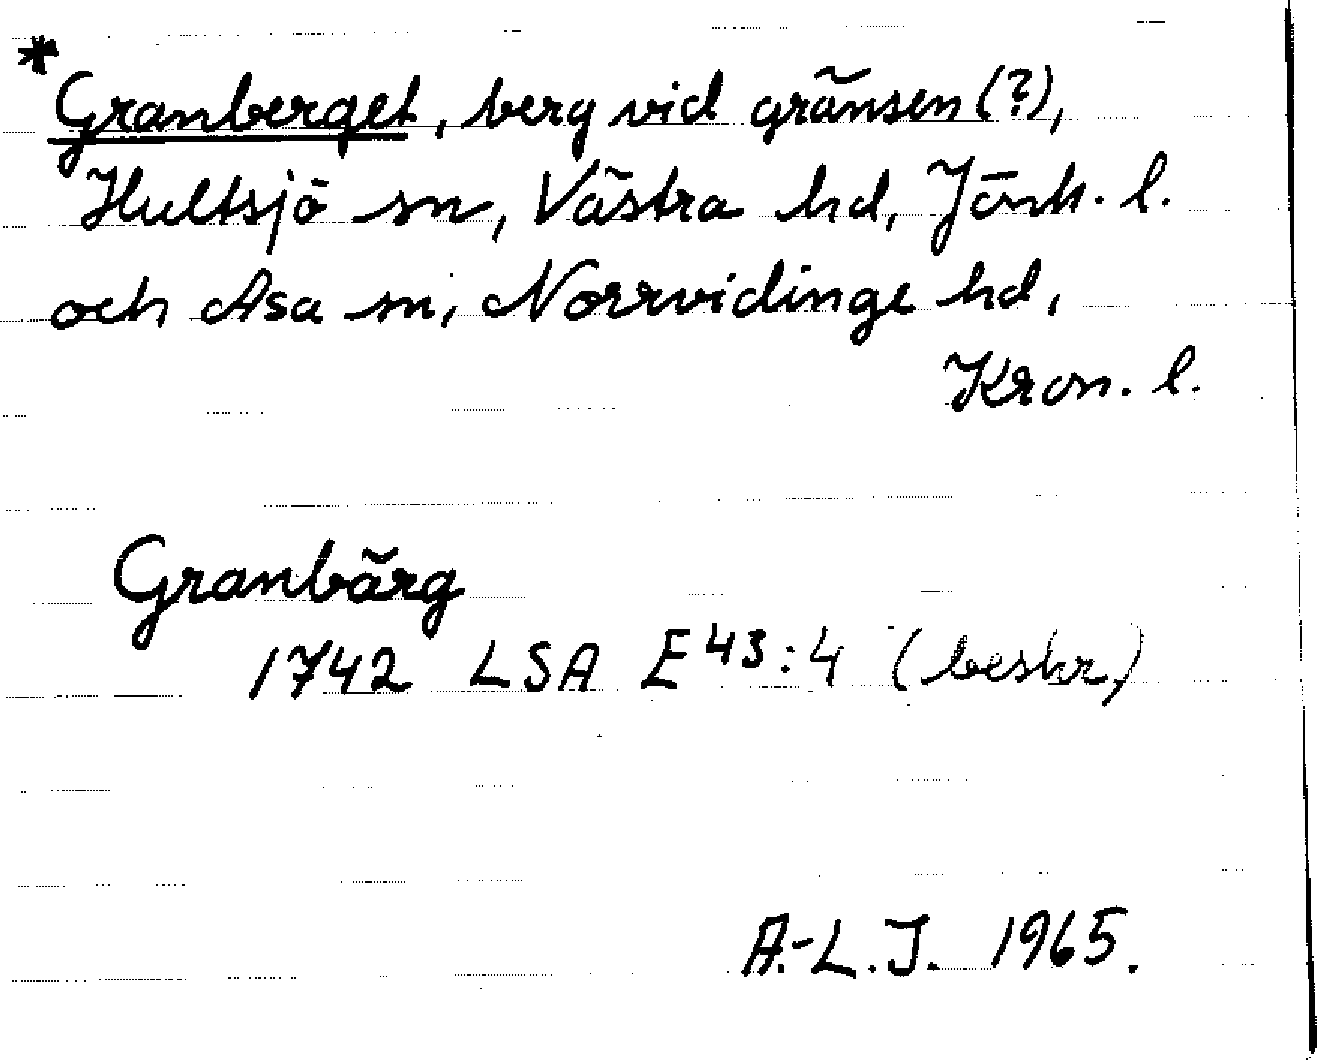 *
Granberget, berg vid gränsen (?),
Hultsjö sn, Västra hd, Jönk. l.
och Asa sn, Norrvidinge hd,
Kron. l.
Granbärg
1742 LSA E 43:4 (beskr.)
A.-L. J. 1965.